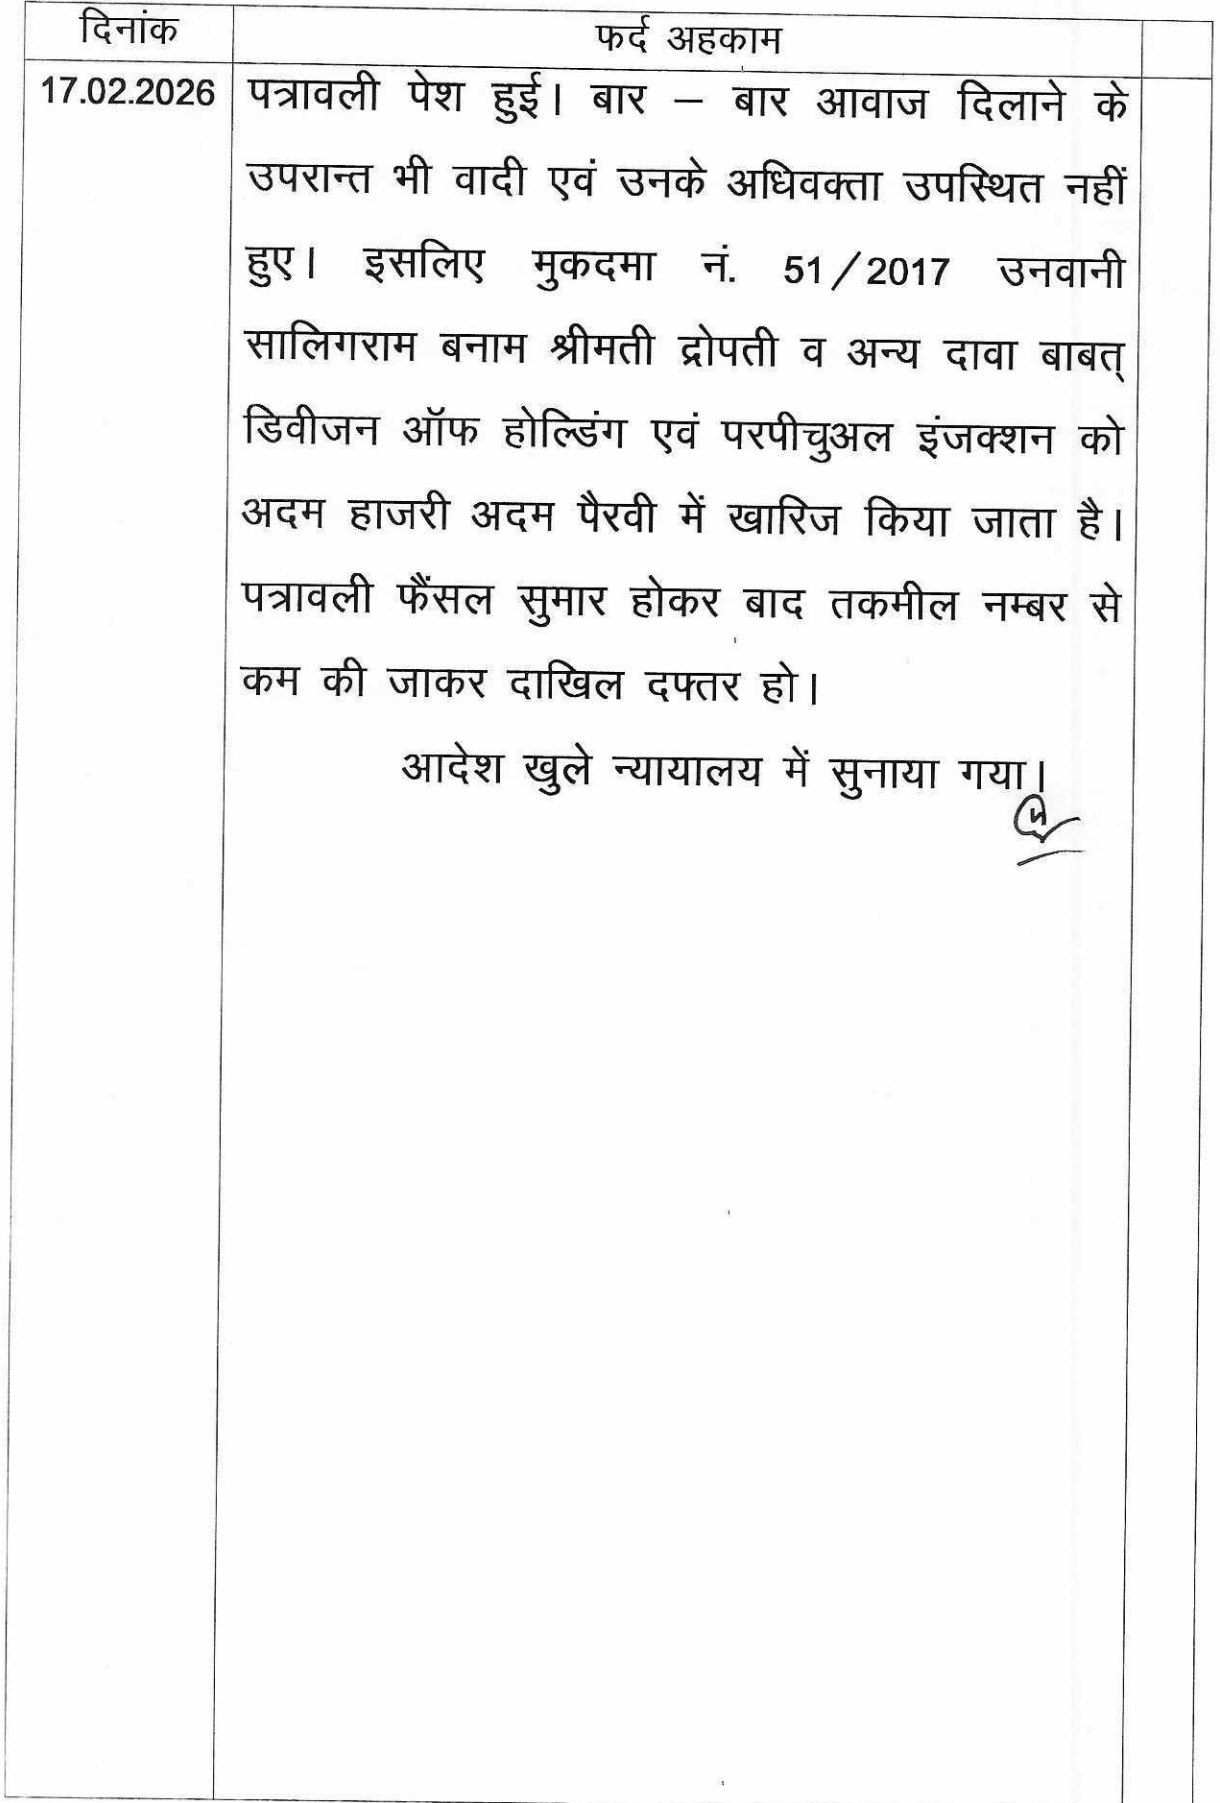 दिनांक फर्द अहकाम
17.02.2026 पत्रावली पेश हुई। बार – बार आवाज दिलाने के
उपरान्त भी वादी एवं उनके अधिवक्ता उपस्थित नहीं
हुए। इसलिए मुकदमा नं. 51/2017 उनवानी
सालिगराम बनाम श्रीमती द्रोपती व अन्य दावा बाबत्
डिवीजन ऑफ होल्डिंग एवं परपीचुअल इंजक्शन को
अदम हाजरी अदम पैरवी में खारिज किया जाता है।
पत्रावली फैंसल सुमार होकर बाद तकमील नम्बर से
कम की जाकर दाखिल दफ्तर हो।
आदेश खुले न्यायालय में सुनाया गया।